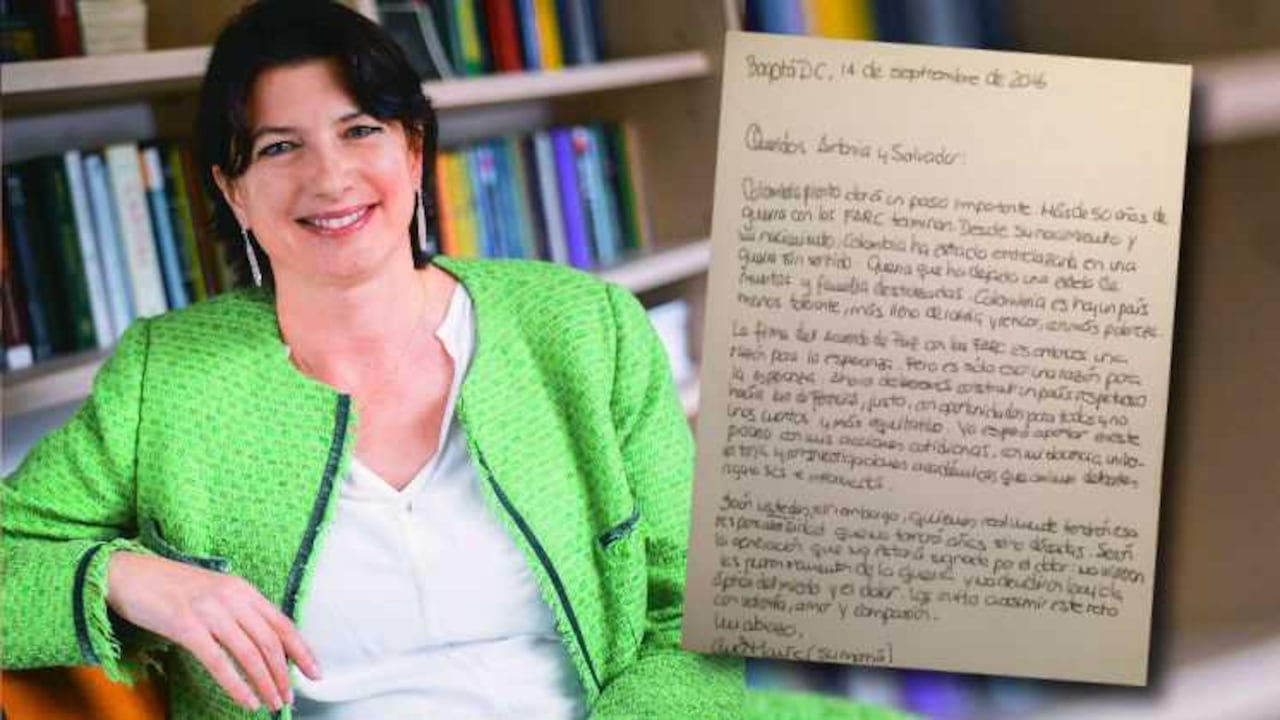 Bogotá D.C, 14 de septiembre de 2016
Queridos Antonia y Salvador:
Colombia pronto dará un paso importante. Más de 50 años de
guerra con las FARC terminan. Desde su nacimiento y
mi nacimiento, Colombia ha estado entrelazada en una
guerra sin sentido. Guerra que ha dejado una estela de
muertos y familias destrozadas. Colombia es hoy un país
menos tolerante, más lleno de rabia y rencor, es más pobre
La firma del Acuerdo de Paz con las FARC es entonces una
razón para la esperanza. Pero es sólo eso una razón para
la esperanza. Ahora debemos construir un país respetuoso
hacia las diferencias, justo, con oportunidades para todos y no
unos cuantos y más equitativo. Yo espero aportar en este
proceso con mis acciones cotidianas, con mi docencia
y investigaciones académicas que
Serán ustedes, sin embargo, quienes realmente tendrán esa
responsabilidad que no tomará años sino décadas. Serán
la generación que no estará signada por el dolor: no
los de la guerra y no bajo la
óptica del miedo y el dolor. Los invito a asumir este reto
con valentía, amor y compasión.
Un abrazo,
(su mamá)